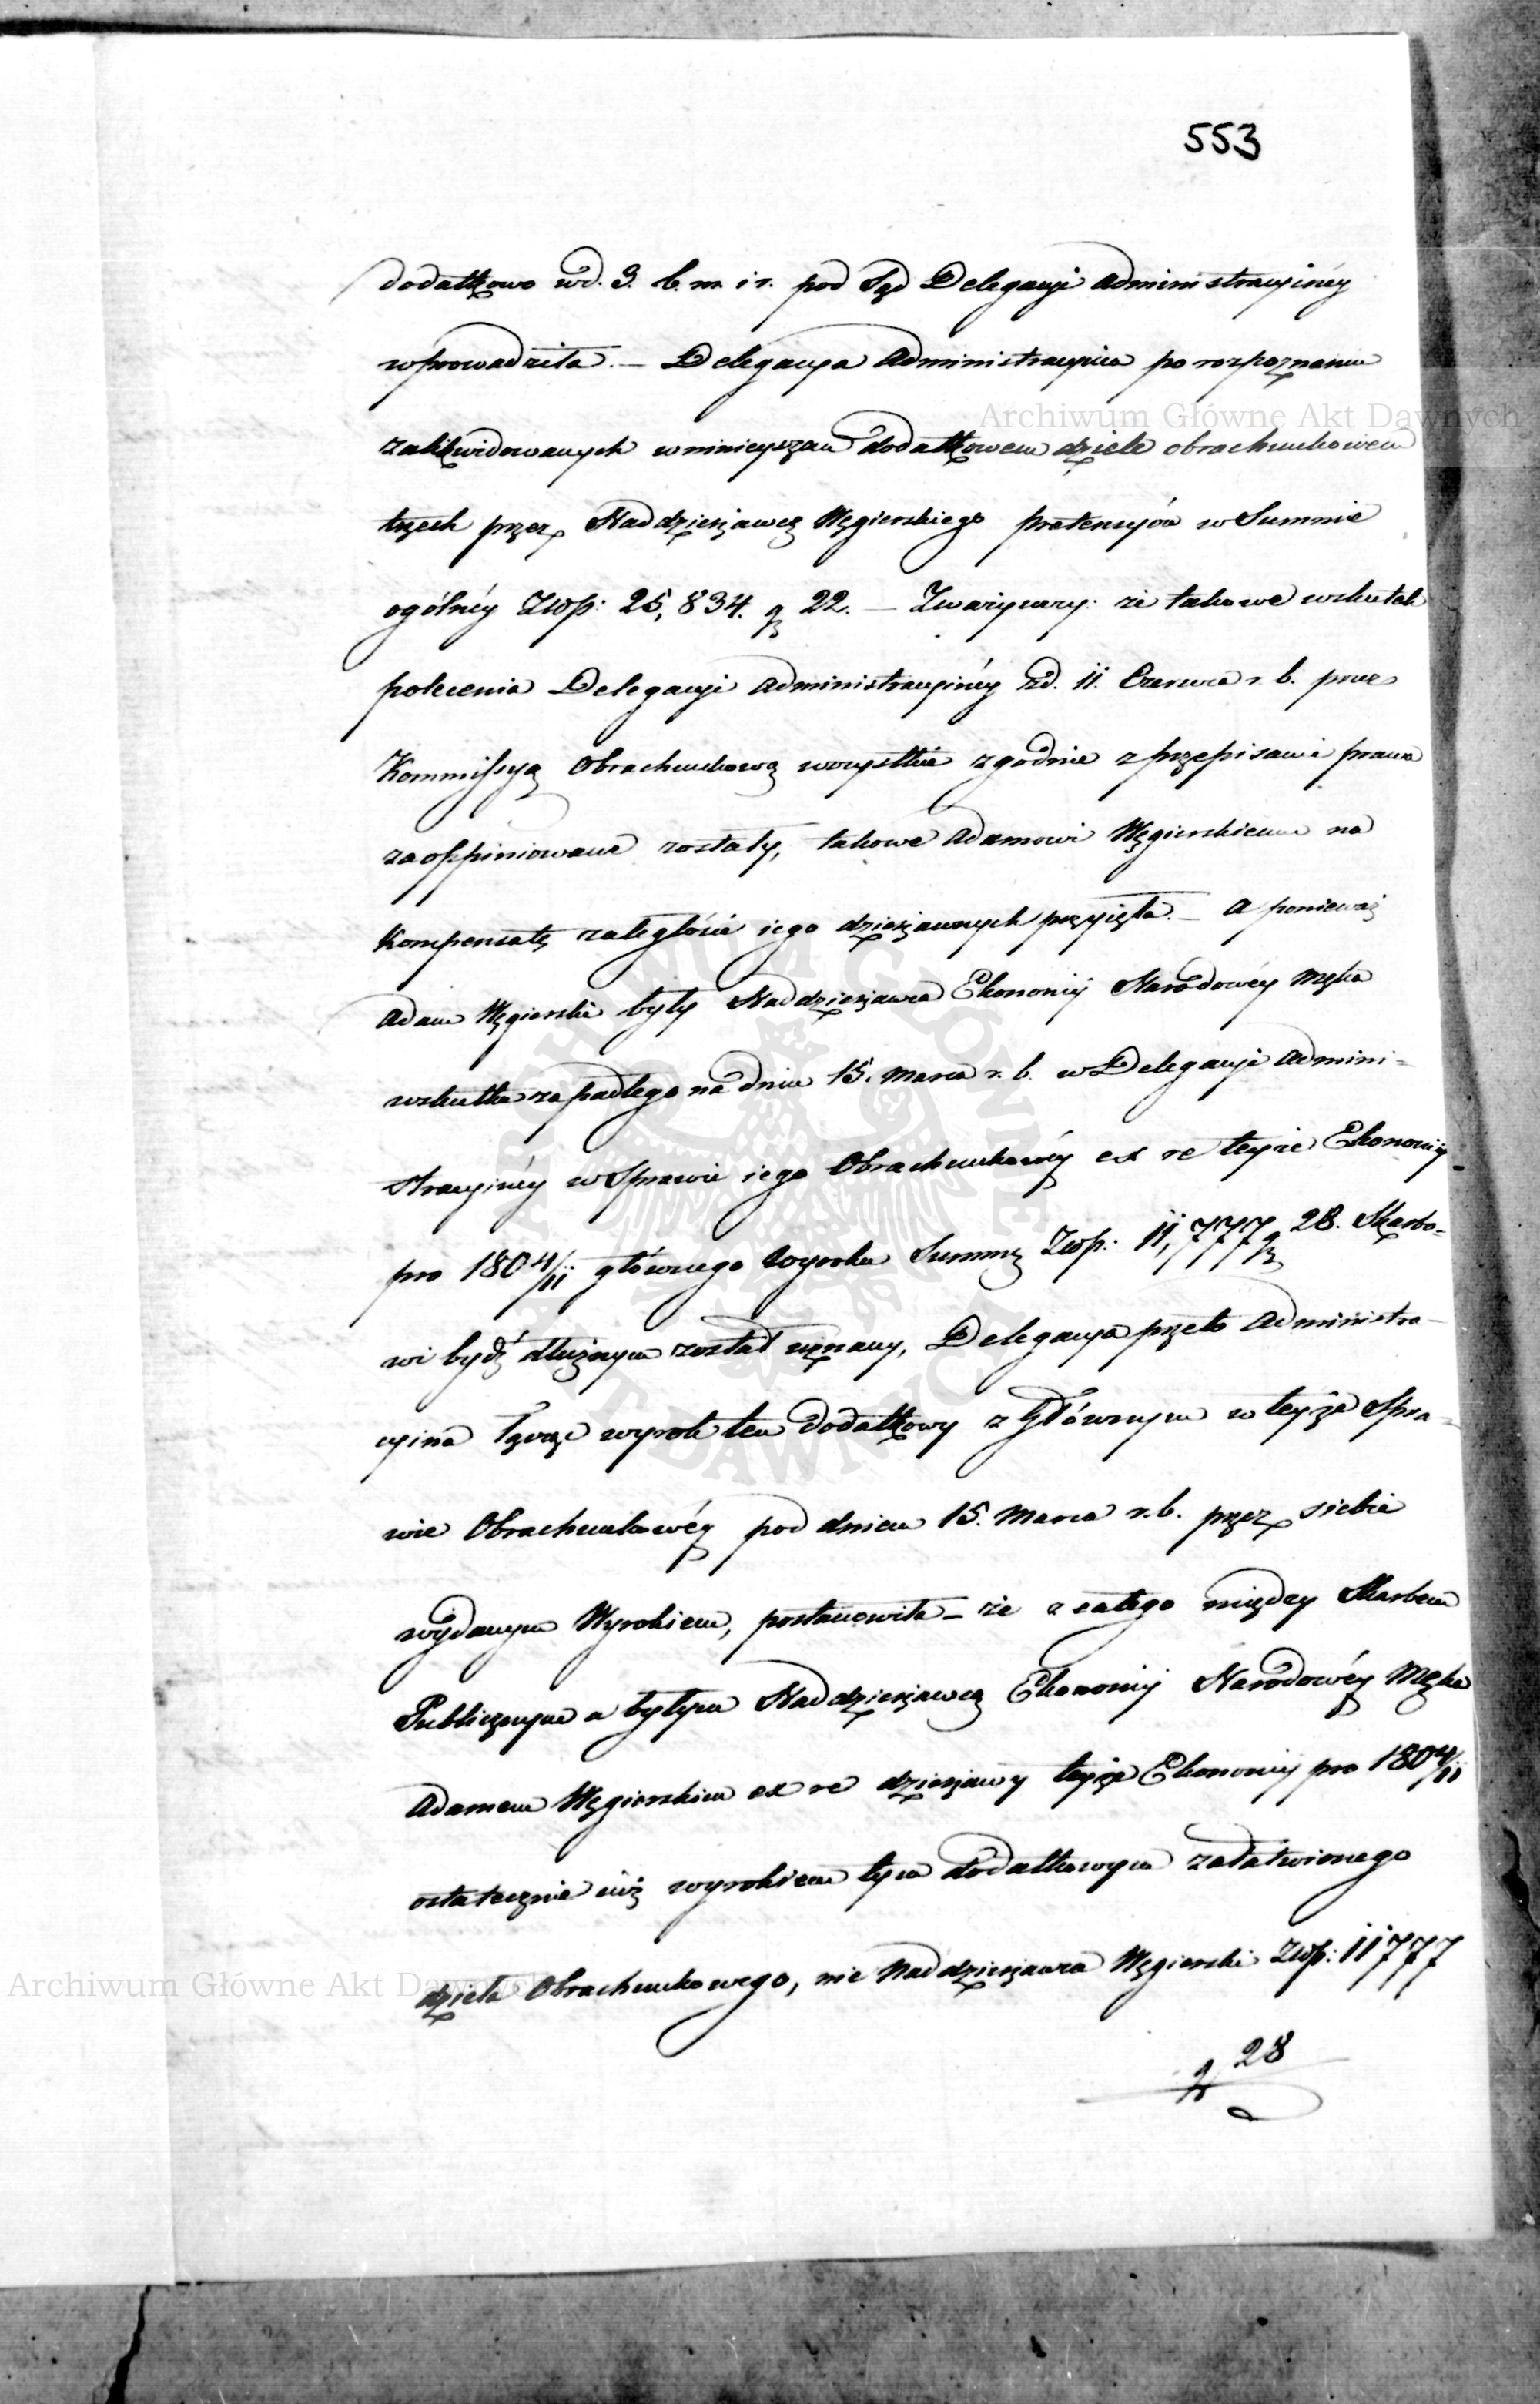 553
dodatkowo w d. 3. b. m. i r. pod Sąd Delegacyi Administracyinéy
wprowadziła. — Delegacya Administracyina po rozpoznaniu
zalikwidowanych w ninieyszem dodatkowem dziele obrachunkowem
trzech przez Naddzierżawcę Węgierskiego pretensyów w Summie
ogólnéy Złłp: 25,834. gr 22. — Zważywszy: że takowe wskutek
polecenia Delegacyi Administracyinéy z d. 11. Czerwca r. b. przez
Kommissyą Obrachunkową wszystkie zgodnie z przepisami prawa
zaoppiniowane zostały, takowe Adamowi Węgierskiemu na
Kompensatę zaległości iego dzierżawnych przyięła. — A ponieważ
Adam Węgierski były Naddzierżawca Ekonomij Narodowéy Męka
wskutku zapadłego na dniu 15. Marca r. b. w Delegacyi Admini=
stracyinéy w Sprawie iego Obrachunkowéy ex re teyże Ekonomij
pro 180 4/11 głównego Wyroku Summę Złłp: 11,777 gr 28. Skarbo=
wi bydź dłużnym został uznany, Delegacya przeto Administra-
cyina łącząc wyrok ten dodatkowy z Głównym w teyże Spra-
wie Obrachunkowéy pod dniem 15. Marca r. b. przez siebie
wydanym Wyrokiem, postanowiła — że z całego między Skarbem
Publicznym a byłym Naddzierżawcą Ekonomij Narodowéy Męka
Adamem Węgierskim ex re dzierżawy teyże Ekonomij pro 180 4/11
ostatecznie iuż wyrokiem tym dodatkowym załatwionego
dzieła Obrachunkowego, nie Naddzierżawca Węgierski Złłp: 11777
gr 28
Archiwum Główne Akt Dawnych
ARCHIWUM GŁÓWNE AKT DAWNYCH
Archiwum Główne Akt Dawnych